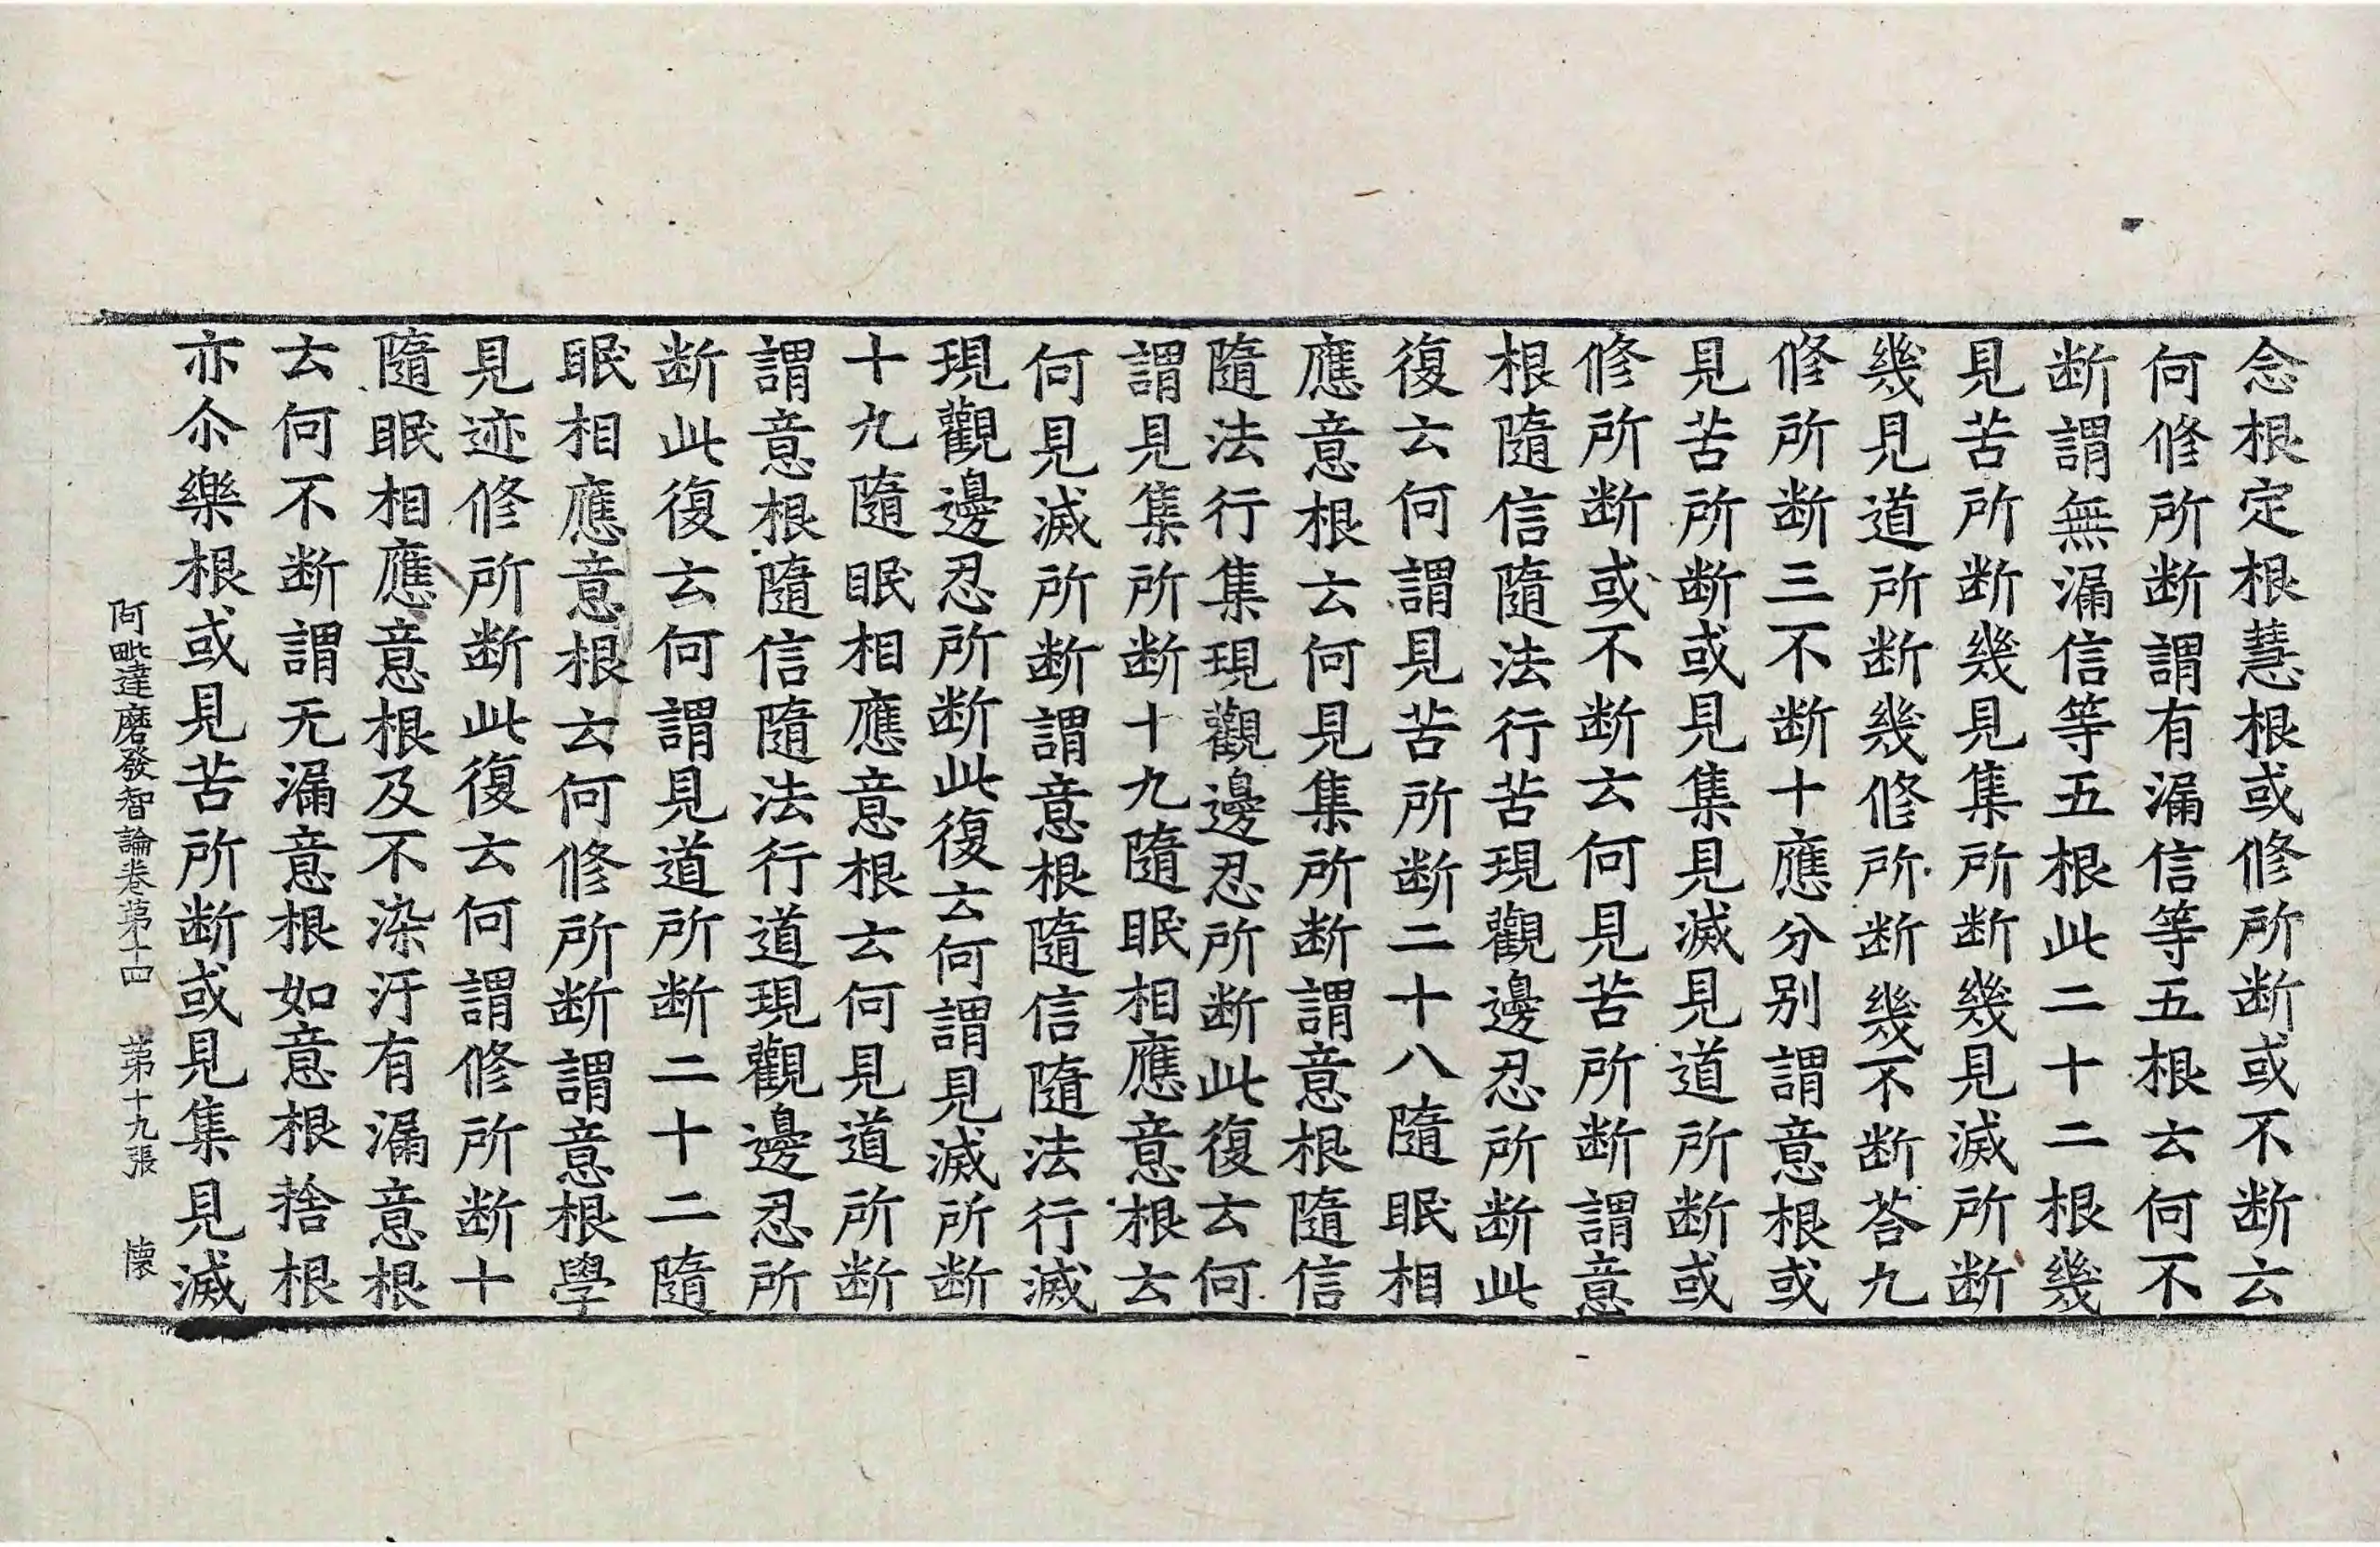 念根定根慧根或修所断或不断云
何修所断謂有漏信等五根云何不
断謂無漏信等五根此二十二根幾
見苦所断幾見集所断幾見滅所断
幾見道所断幾修所断幾不断荅九
修所断三不断十應分别謂意根或
見苦所断或見集見滅見道所断或
修所断或不断云何見苦所断謂意
根隨信隨法行苦現觀邊忍所断此
復云何謂見苦所断二十八隨眠相
應意根云何見集所断謂意根隨信
隨法行集現觀邊忍所断此復云何
謂見集所断十九隨眠相應意根云
何見滅所断謂意根隨信隨法行滅
現觀邊忍所断此復云何謂見滅所断
十九隨眠相應意根云何見道所断
謂意根隨信隨法行道現觀邊忍所
断此復云何謂見道所断二十二隨
眠相應意根云何修所断謂意根學
見迹修所断此復云何謂修所断十
隨眠相應意根及不染汙有漏意根
云何不断謂无漏意根如意根捨根
亦尒樂根或見苦所断或見集見滅
阿毗達磨發智論卷苐十四 苐十九張 懐